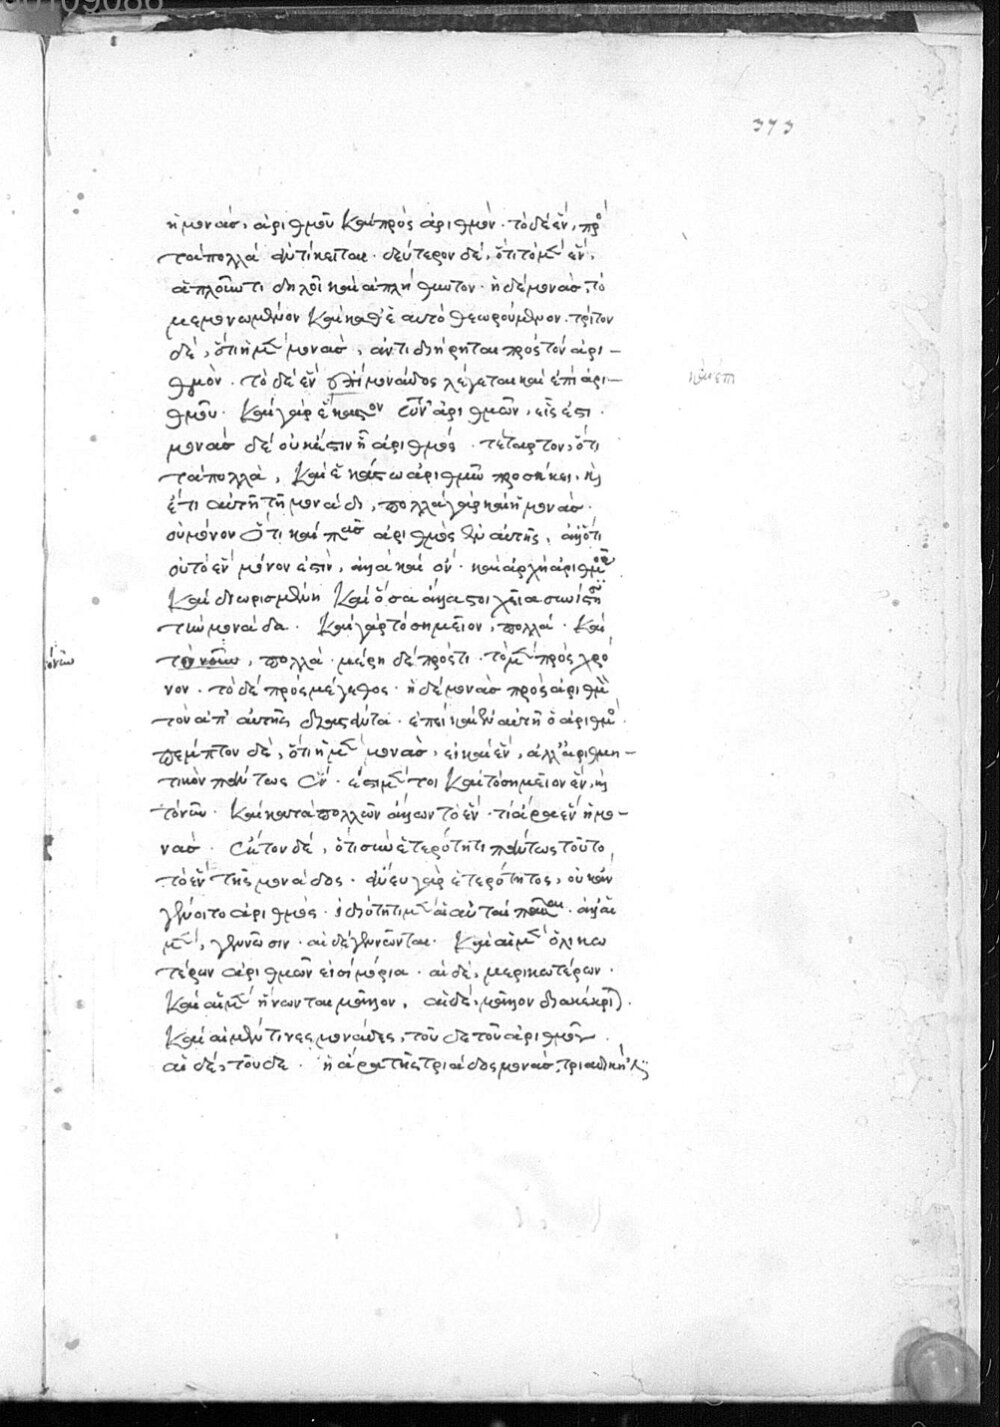 373
ἡ μονὰς, ἀριθμοῦ καὶ πρὸς ἀριθμόν. τὸ δὲ ἓν, πρὸς
τὰ πολλὰ ἀντίκειται. δεύτερον δὲ, ὅτι τὸ μὲν ἓν,
ἁπλοῦν τι δηλοῖ καὶ ἀπλήθωτον. ἡ δὲ μονὰς, τὸ
μεμονωμένον καὶ καθ' ἑαυτὸ θεωρούμενον. τρίτον
δὲ, ὅτι ἡ μὲν μονὰς, ἀντιδιήρηται πρὸς τὸν ἀρι-
θμὸν. τὸ δὲ ἓν μονάδος λέγεται καὶ ἐπὶ ἀρι-
καὶ ἐπι
θμοῦ. καὶ γὰρ ἕκαστον τῶν ἀριθμῶν, εἷς ἐστι.
μονὰς δὲ οὐκ ἔστιν ἢ ἀριθμός. τέταρτον, ὅτι
τὰ πολλὰ, καὶ ἑκάστω ἀριθμῶ προσήκει, καὶ
ἔτι αὐτῆ τῆ μονάδι, πολλὰ γὰρ καὶ ἡ μονὰς.
οὐ μόνον ὅτι καὶ πᾶς ἀριθμὸς ἐν αὐτῆ, ἀλλ' ὅτι
οὐ τὸ ἓν μόνον ἐστὶν, ἀλλὰ καὶ ὄν. καὶ ἀρχὴ ἀριθμοῦ
καὶ διωρισμένη καὶ ὅσα ἄλλα στοιχεῖα συνίστησι
τὴν μονάδα. καὶ γὰρ τὸ σημεῖον, πολλά. καὶ
τὸ νῦν, πολλὰ. μέρη δὲ πρός τι. τὸ μὲν πρὸς χρό
νον. τὸ δὲ πρὸς μέγεθος. ἡ δὲ μονὰς πρὸς ἀριθμὸν
τὸν ἀπ' αὐτῆς διαστάντα. ἐπεὶ καὶ ἐν αὐτῆ ὁ ἀριθμός.
πέμπτον δὲ, ὅτι ἡ μὲν μονὰς, εἰ καὶ ἓν, ἀλλ' ἀριθμη-
τικὸν πάντως ἕν. ἔστι μέν τοι καὶ τὸ σημεῖον ἓν, καὶ
τὸ νῦν. καὶ κατὰ πολλῶν ἄλλων τὸ ἕν. τί ἄρα ἓν ἡ μο-
νάς. ἕκτον δὲ, ὅτι σὺν ἑτερότητι πάντως τοῦτο
τὸ ἓν τῆς μονάδος. ἄνευ γὰρ ἑτερότητος, οὐκ ἂν
γένοιτο ἀριθμός. ἰδιότητι μὲν αἱ αὐταὶ πᾶσαι. ἀλλ' αἱ
μὲν, γεννῶσιν. αἱ δὲ γεννῶνται. καὶ αἱ μὲν ὁλικω
τέρων ἀριθμῶν εἰσὶ μόρια. αἱ δὲ, μερικωτέρων.
καὶ αἱ μὲν ἥνωνται μᾶλλον, αἱ δὲ, μᾶλλον διακέκρινται.
καὶ αἱ μέν τινες μονάδες, τοῦδε τοῦ ἀριθμοῦ.
αἱ δὲ, τοῦδε. ἡ ἄρα τῆς τριάδος μονὰς, τριαδική